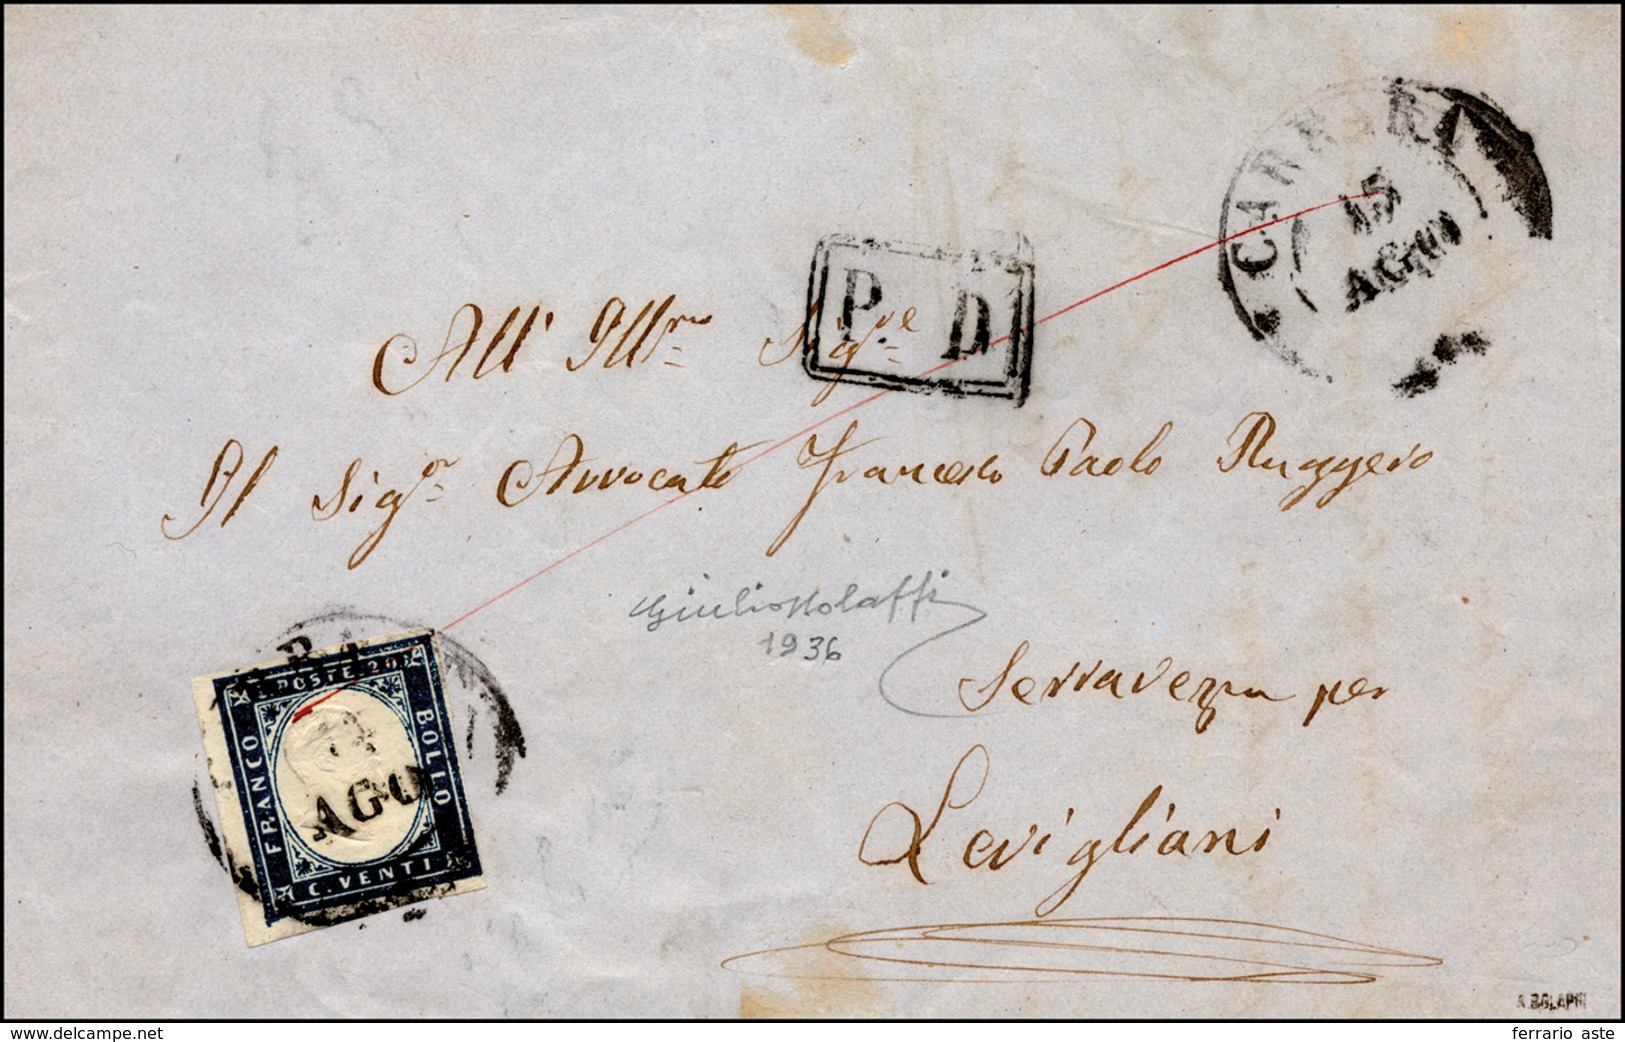 CARRARA
15
AGO
P. D
All' Illmo Sigre
Il Sigor Avvocato Francesco Paolo Ruggero
Giulio Bolaffi
1936
Serravezza per
Levigliani
C. POSTE 20
FRANCO
BOLLO
C. VENTI
AGO
A. BOLAFFI
delcampe.net
ferrario aste